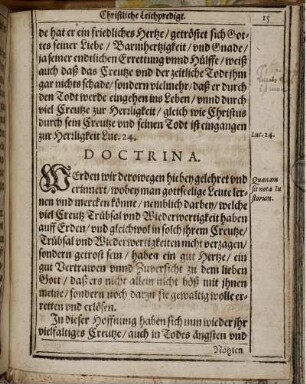 Christliche Leichpredigt.
15
de hat er ein friedliches Hertze / getröstet sich Got-
tes seiner Liebe / Barmhertzigkeit / vnd Gnade /
ja seiner endtlichen Errettung vnnd Hülffe / weiß
auch daß das Creutze vnd der zeitliche Todt jhm
gar nichts schade / sondern vielmehr / daß er durch
den Todt werde eingehen ins Leben / vnnd durch
viel Creutze zur Herzligkeit / gleich wie Christus
durch sein Creutze vnd seinen Todt ist eingangen
zur Herzligkeit Luc. 24.
Luc. 24.
DOCTRINA.
WErden wir derowegen hiebey gelehret vnd
erinnert / wobey man gottseelige Leute ler-
nen vnd mercken könne / nemblich darbey / welche
viel Creutz Trübsal vnd Wiederwertigkeit haben
auff Erden / vnd gleichwol in solchjhrem Creutze /
Trübsal vnd Wiederwertigkeiten nicht verzagen /
sondern getrost sein / haben ein gut Hertze / ein
gut Vertrawen vnnd Zuversicht zu dem lieben
Gott / daß ers nicht allein nicht böß mit jhnen
meine / sondern noch darzu sie gewaltig wolle er-
retten vnd erlösen.
Quænam
sit nota Iu-
storum.
In dieser Hoffnung haben sich nun wieder jhr
vielfältiges Creutze / auch in Todes ängsten vnd
Nöhten